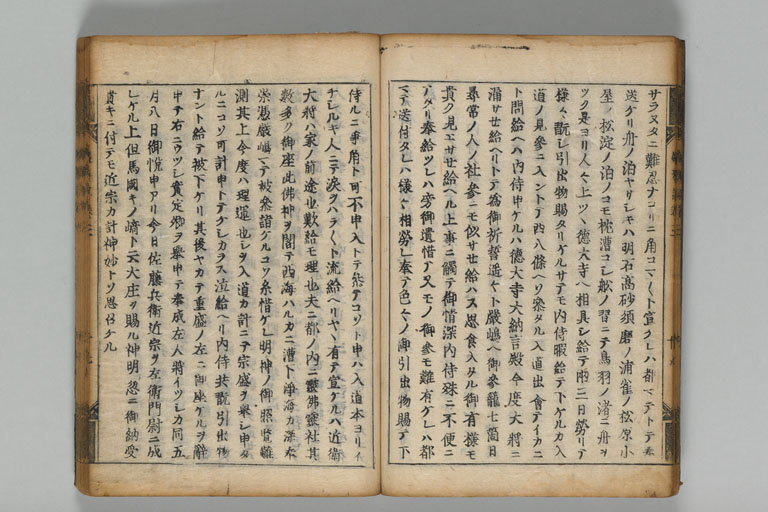 サラヌタニ難忍ナコリニ角コマ〱ト宣クレハ都マテトテ奉
送ケリ舟ノ泊ヤサシキハ明石高砂須磨ノ浦雀ノ松原小
屋ノ松淀ノ泊ノコモ枕漕コシ舩ノ習ニテ鳥羽ノ渚ニ舟ヲ
ツク是ヨリ人々上ツヽ徳大寺ヘ相具シ給テ両三日勞リテ
様々翫シ引出物賜タリケルサテモ内侍暇給テ下ケルカ入
道ノ見參ニ入ントテ西八條ヘソ參タル入道出會テイカニ
ト問給ヘハ内侍申ケルハ德大寺大納言殿今度大將ニ
漏サセ給ヘリトテ為御祈誓遥々ト嚴嶋ヘ御參籠七箇日
尋常ノ人ノ社參ニモ似サセ給ハス思食入タル御有様モ
貴ク見エサセ給ヘル上事ニ觸テ御情深内侍殊ニ不便ニ
アタリ奉給ツレハ旁御遺惜テ又モノ御參モ難有ケレハ都
マテ送付タレハ様々相勞シ奉テ色々ノ御引出物賜テ下
侍ルニ爭角ト可不申入トテ態テコソト申ハ入道本ヨリイ
チシルキ人ニテ涙ヲハラ〱ト流給ヘリヤヽ有テ宣ケルハ近衛
大將ハ家ノ前途也歎給モ理也夫ニ都ノ内ニ靈佛靈社其
數多ク御座此佛神ヲ閣テ西海ハルカニ漕下淨海カ深奉
崇憑嚴嶋マテ被參詣ケルコソ糸惜ケレ明神ノ御照覽難
測其上今度ハ理運也シヲ入道カ計ニテ宗盛ヲ擧シ申タ
ルニコソ可計申トテシカラス泣給ヘリ内侍共翫引出物
ナント給テ被下ケリ其後ヤカテ重盛ノ左ニ御座ケルヲ辭
申テ右ニウツシ實定卿ヲ擧申テ奉成左大將イツシカ同五
月八日御悦申アリ今日佐藤兵衛近宗ヲ左衛門尉ニ成
シケル上但馬國キノ崎ト云大庄ヲ賜ル神明惣ニ御納受
貴キニ付テモ近宗カ計神妙トソ思召ケル